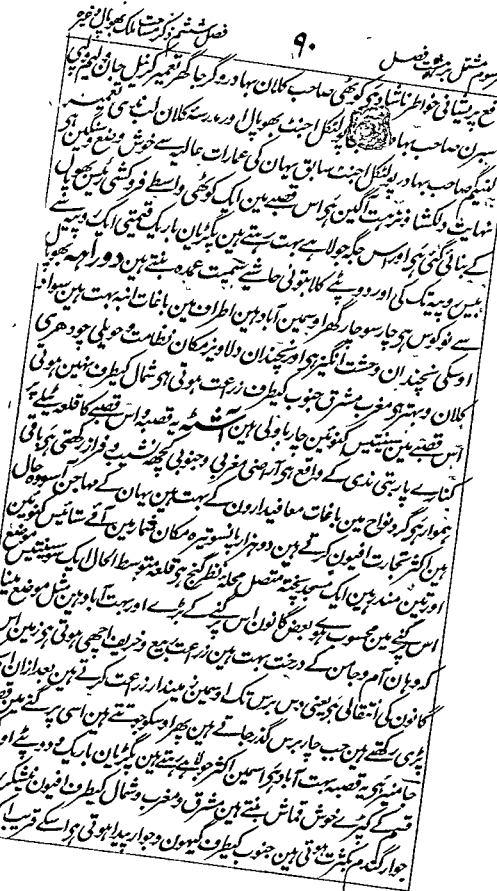 فصل ششم ذکر مساحت ملک بھوپال وغیرہ
۹۰
سوم مشتمل بر ہشت فصل
رفع پریشانی خواطر ناشاد ہی کوٹھی صاحب کلان بہادر و گرجا گھر تعمیر کرنیل جان ولیم
سبرن صاحب بہادر پولٹکل اجنٹ بھوپال اور مدرسۂ کلان لب
لنیگم صاحب بہادر پولٹکل اجنٹ سابق یہان کی عمارات عالیہ سے خوش وضع و سنگین ہی
نہایت دلکشا و نزہت آگین ہی اس قصبے مین ایک کوٹھی واسطے فروکشی رئیس بھوپال
کے بنائی گئی ہی اور اس جگہ جولاہے بہت رہتے ہین پگڑیان باریک قیمتی ایک روپیہ سے
بیس روپیہ تک کی اور دوپٹے کلابتونی حاشیے سمیت عمدہ بنتے ہین دوراہہ بھوپال
سے نو کوس ہی چار سو چار گھر اوسمین آباد ہین اطراف مین باغات انبہ بہت ہین سواد
اوسکی نچندان وحشت انگیز ہی اور نچندان دلاویز مکان نظامت و حویلی چودھری
کلان و بہتر ہی مغرب مشرق جنوب کیطرف زراعت ہوتی ہی شمال کیطرف نہین ہوتی
اس قصبے مین سینتیس کنوئین چار باولی ہین آشٹہ یہ قصبہ و اس قصبے کا قلعہ ٹیلے پر
کنارے پاربتی ندی کے واقع ہی آراضی مغربی و جنوبی کچھ نشیب و فراز رکھتی ہی باقی
ہموار ہی گرد و نواح مین باغات معافیدارون کے بہت ہین یہان کے مہاجن آسودہ حال
ہین اکثر تجارت افیون کرتے ہین دو ہزار پانسو تیرہ مکان شمار مین آئے ستائیس کنوئین
اور تین مندر ہین ایک مسجد پختہ متصل محلہ نظر گنج ہی قلعہ متوسط الحال ایک سو سینتیس موضع
اس پرگنے مین محسوب ہی بعض گانون اس پرگنے کے بڑے اور بہت آباد ہین مثل موضع
کہ وہان آم و جامن کے درخت بہت ہین زراعت ربیع و خریف اچھی ہوتی ہی زمین اس
گانون کی انتقالی ہی یعنی دس برس تک اوسمین زمیندار زراعت کرتے ہین بعد ازان
پڑی رکھتے ہین جب چار برس گذر جاتے ہین پھر اوسکو جوتتے ہین اسی پرگنے مین
ہی یہ قصبہ بہت آباد ہی اسمین اکثر جولاہے رہتے ہین پگڑیان باریک و دوپٹے اور
قسم کے کپڑے خوش قماش بنتے ہین مشرق و مغرب و شمال کیطرف افیون نیشکر
جوار گندم بکثرت ہوتی ہین جنوب کیطرف گیہون و جوار پیدا ہوتی ہی اسکے قریب